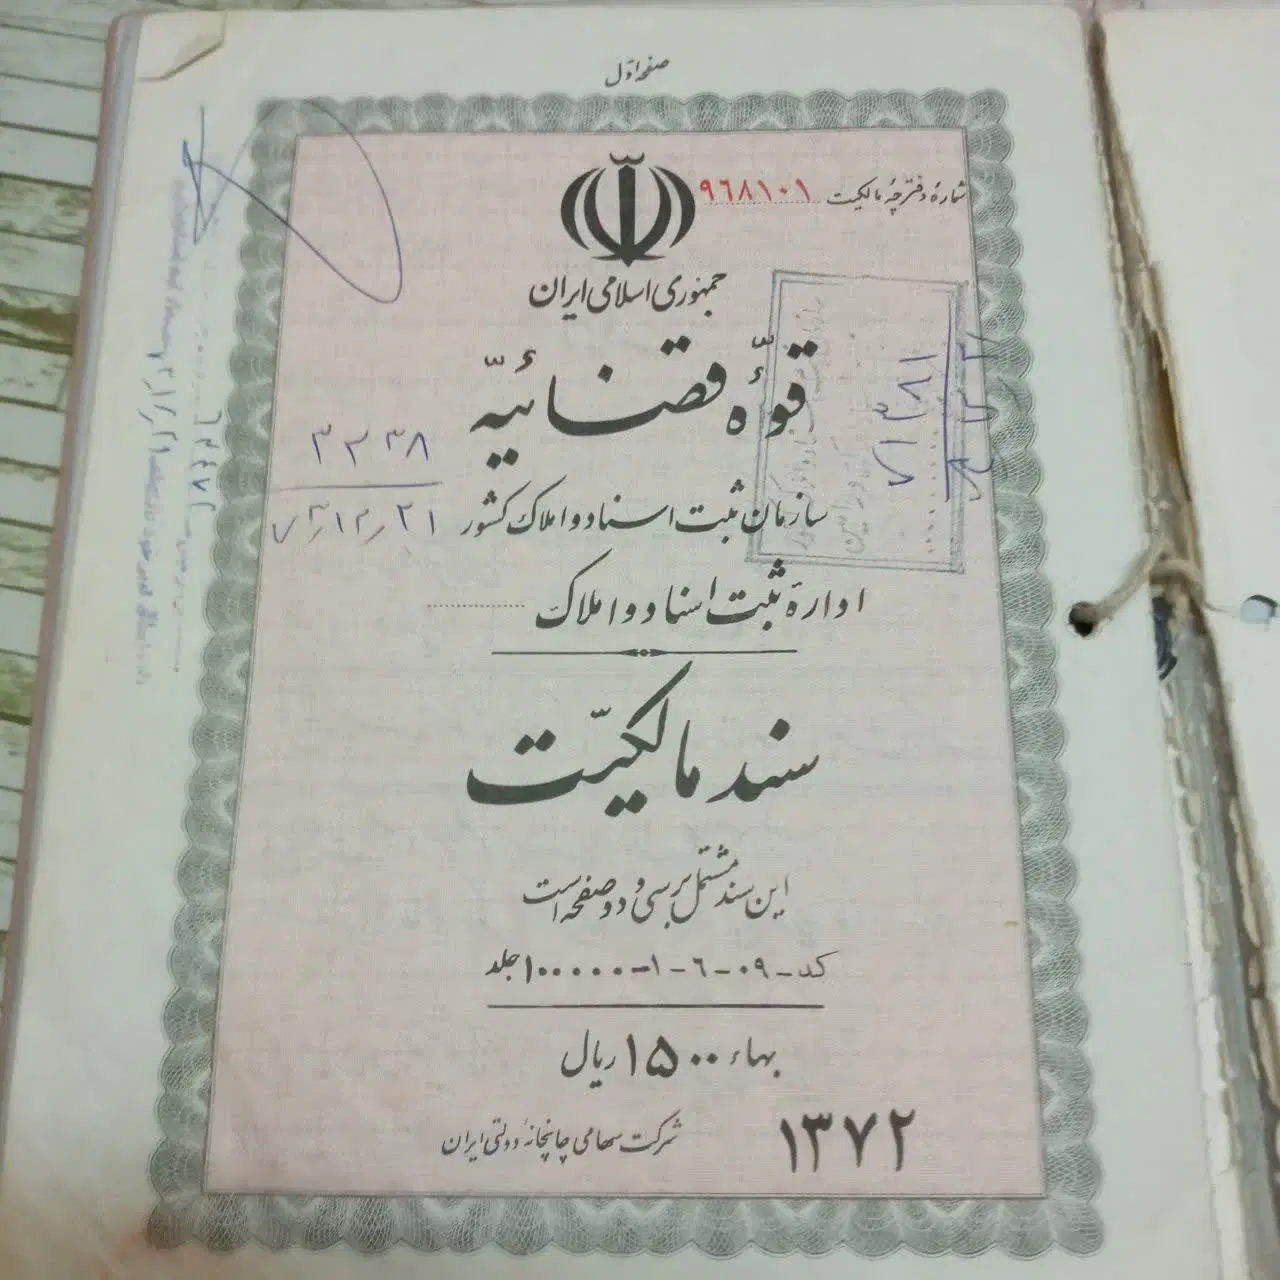 صفحه اوّل
شمارهٔ دفترچهٔ مالکیت ۹۶۸۱۰۱
جمهوری اسلامی ایران
قوّهٔ قضائیّه
سازمان ثبت اسناد و املاک کشور
ادارهٔ ثبت اسناد و املاک
۳۲۳۸
۷۳٫۱۲٫۲۱
سند مالکیّت
این سند مشتمل بر سی و دو صفحه است
کد ـ ۰۹ ـ ۶ ـ ۱ ـ ۱۰۰۰۰۰ جلد
بهاء ۱۵۰۰ ریال
۱۳۷۲
شرکت سهامی چاپخانهٔ دولتی ایران